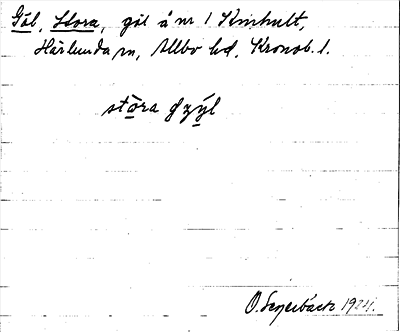 Göl, Stora, göl å nr 1 Kinhult,
Härlunda sn, Allbo hd, Kronob. l.
stòra gyýl
O. 1924.